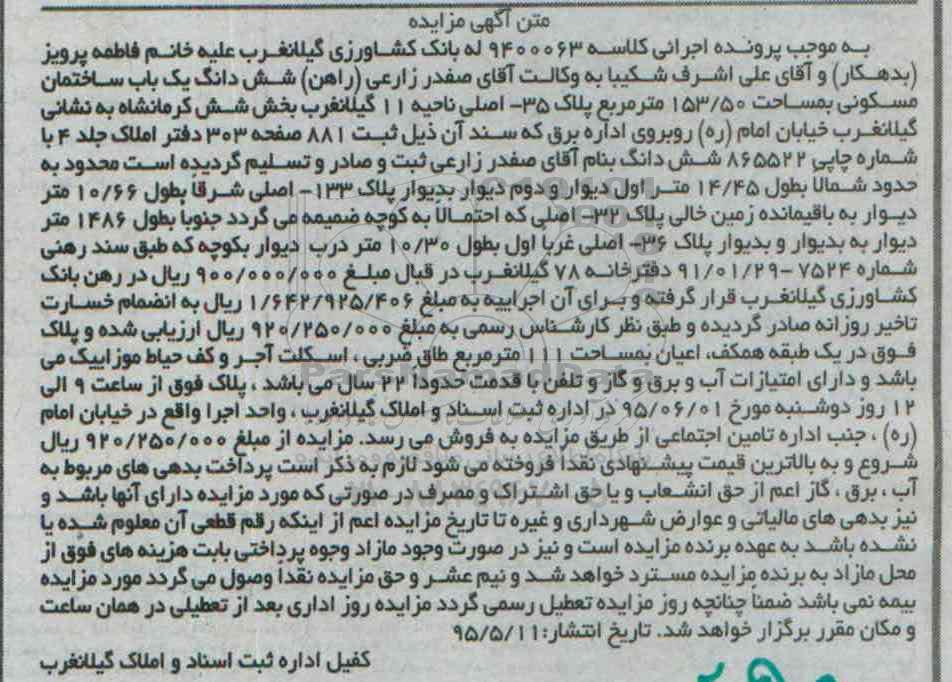 متن آگهی مزایده
به موجب پرونده اجرائی کلاسه ۹۴۰۰۰۶۳ له بانک کشاورزی گیلانغرب علیه خانم فاطمه پرویز
(بدهکار) و آقای علی اشرف شکیبا به وکالت آقای صفدر زارعی (راهن) شش دانگ یک باب ساختمان
مسکونی بمساحت ۱۵۳/۵۰ مترمربع پلاک ۳۵- اصلی ناحیه ۱۱ گیلانغرب بخش شش کرمانشاه به نشانی
گیلانغرب خیابان امام (ره) روبروی اداره برق که سند آن ذیل ثبت ۸۸۱ صفحه ۳۰۳ دفتر املاک جلد ۴ با
شماره چاپی ۸۶۵۵۲۲ شش دانگ بنام آقای صفدر زارعی ثبت و صادر و تسلیم گردیده است محدود به
حدود شمالاً بطول ۱۴/۴۵ متر اول دیوار و دوم دیوار بدیوار پلاک ۱۳۳- اصلی شرقا بطول ۱۰/۶۶ متر
دیوار به باقیمانده زمین خالی پلاک ۳۲- اصلی که احتمالاً به کوچه ضمیمه می گردد جنوبا بطول ۱۴۸۶ متر
دیوار به بدیوار و بدیوار پلاک ۳۶- اصلی غرباً اول بطول ۱۰/۳۰ متر درب دیوار بکوچه که طبق سند رهنی
شماره ۷۵۲۴ -۹۱/۰۱/۲۹ دفترخانه ۷۸ گیلانغرب در قبال مبلغ ۹۰۰/۰۰۰/۰۰۰ ریال در رهن بانک
کشاورزی گیلانغرب قرار گرفته و برای آن اجراییه به مبلغ ۱/۶۴۲/۹۲۵/۴۰۶ ریال به انضمام خسارت
تاخیر روزانه صادر گردیده و طبق نظر کارشناس رسمی به مبلغ ۹۲۰/۲۵۰/۰۰۰ ریال ارزیابی شده و پلاک
فوق در یک طبقه همکف، اعیان بمساحت ۱۱۱ مترمربع طاق ضربی، اسکلت آجر و کف حیاط موزاییک می
باشد و دارای امتیازات آب و برق و گاز و تلفن با قدمت حدوداً ۲۲ سال می باشد، پلاک فوق از ساعت ۹ الی
۱۲ روز دوشنبه مورخ ۹۵/۰۶/۰۱ در اداره ثبت اسناد و املاک گیلانغرب، واحد اجرا واقع در خیابان امام
(ره)، جنب اداره تامین اجتماعی از طریق مزایده به فروش می رسد. مزایده از مبلغ ۹۲۰/۲۵۰/۰۰۰ ریال
شروع و به بالاترین قیمت پیشنهادی نقدا فروخته می شود لازم به ذکر است پرداخت بدهی های مربوط به
آب، برق، گاز اعم از حق انشعاب و یا حق اشتراک و مصرف در صورتی که مورد مزایده دارای آنها باشد و
نیز بدهی های مالیاتی و عوارض شهرداری و غیره تا تاریخ مزایده اعم از اینکه رقم قطعی آن معلوم شده یا
نشده باشد به عهده برنده مزایده است و نیز در صورت وجود مازاد وجوه پرداختی بابت هزینه های فوق از
محل مازاد به برنده مزایده مسترد خواهد شد و نیم عشر و حق مزایده نقداً وصول می گردد مورد مزایده
بیمه نمی باشد ضمناً چنانچه روز مزایده تعطیل رسمی گردد مزایده روز اداری بعد از تعطیلی در همان ساعت
و مکان مقرر برگزار خواهد شد. تاریخ انتشار: ۹۵/۵/۱۱
کفیل اداره ثبت اسناد و املاک گیلانغرب